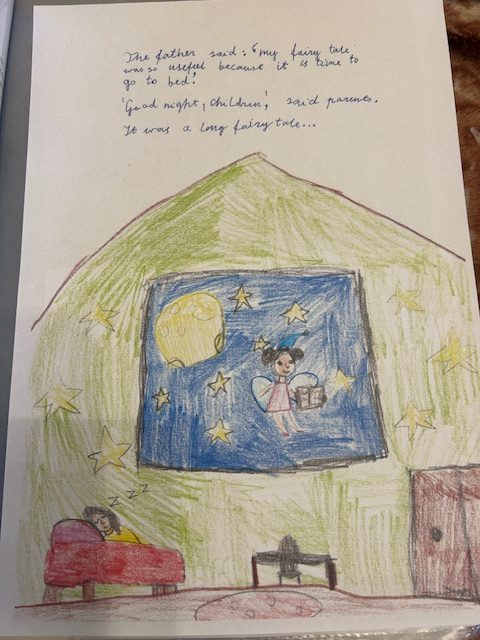 The father said: 'my fairy tale
was so usefeel because it is time to
go to bed'.
'Good night, children', said parents.
It was a long fairy tale...
z z z